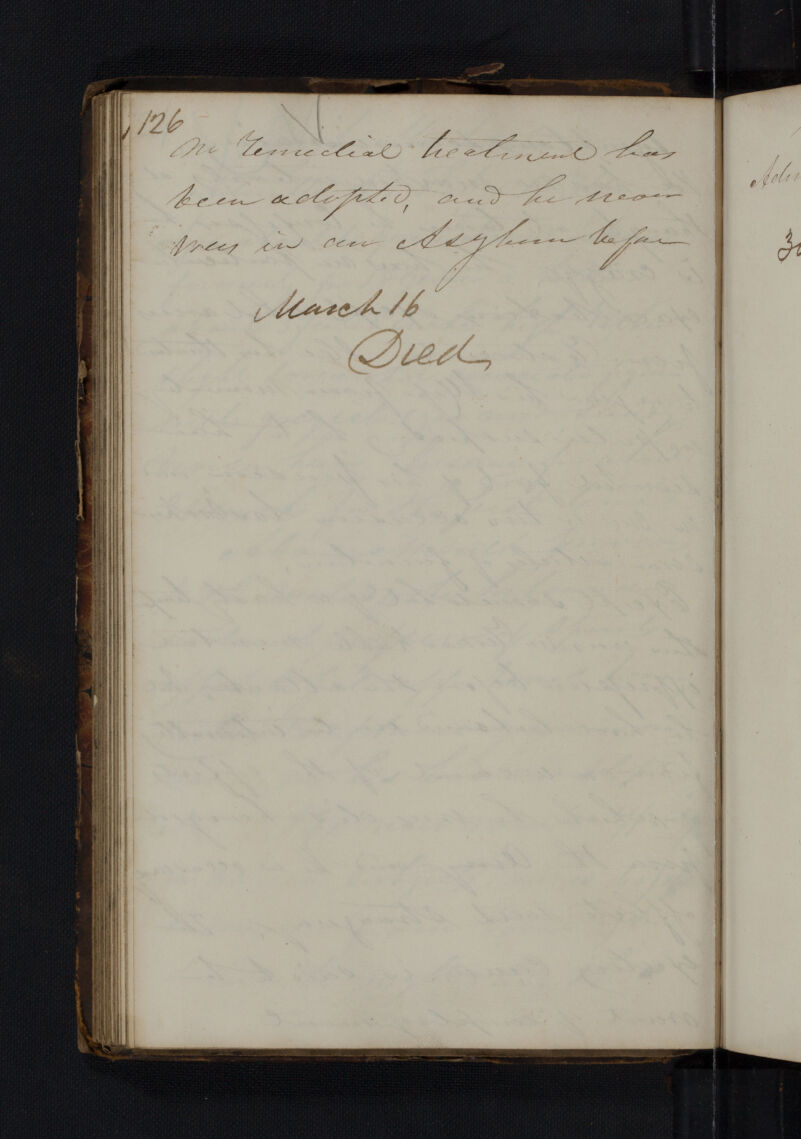 126
No remedial treatment has
been adopted, and he never
was in an Asylum before
March 16
Died
Adm
30